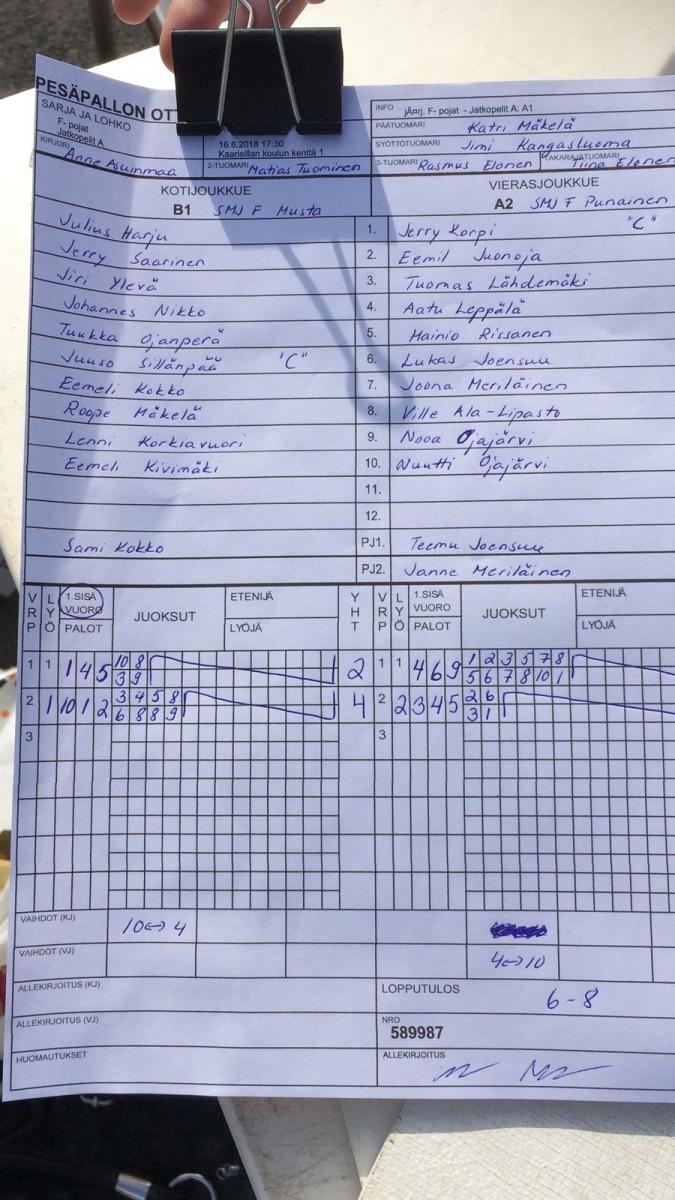 PESÄPALLON OTT
SARJA JA LOHKO
F- pojat
Jatkopelit A
16.6.2018 17:30
Kaarisillan koulun kenttä 1
INFO jÃ¤rj. F- pojat - Jatkopelit A: A1
PÄÄTUOMARI Katri Mäkelä
SYÖTTÖTUOMARI Jimi Kangasluoma
KIRJURI Anne Asuinmaa
2-TUOMARI Matias Tuominen
3-TUOMARI Rasmus Elonen
TAKARAJATUOMARI Tiina Elonen
KOTIJOUKKUE
B1 SMJ F Musta
VIERASJOUKKUE
A2 SMJ F Punainen
Julius Harju 1. Jerry Korpi "C"
Jerry Saarinen 2. Eemil Juonoja
Jiri Ylevä 3. Tuomas Lähdemäki
Johannes Nikko 4. Aatu Leppälä
Tuukka Ojanperä 5. Mainio Rissanen
Juuso Sillänpää "C" 6. Lukas Joensuu
Eemeli Kokko 7. Joona Meriläinen
Roope Mäkelä 8. Ville Ala-Lipasto
Lenni Korkiavuori 9. Nooa Ojajärvi
Eemeli Kivimäki 10. Nuutti Ojajärvi
11.
12.
Sami Kokko PJ1. Teemu Joensuu
PJ2. Janne Meriläinen
VRP LYÖ 1.SISÄ VUORO PALOT JUOKSUT ETENIJÄ LYÖJÄ YHT VRP LYÖ 1.SISÄ VUORO PALOT JUOKSUT ETENIJÄ LYÖJÄ
1 1 1 4 5 10 8 2 1 1 4 6 9 1 2 3 5 7 8
3 9 5 6 7 8 10 1
2 1 10 1 2 3 4 5 8 4 2 2 3 4 5 2 6
6 8 8 9 3 1
3 3
VAIHDOT (KJ) 10<->4
VAIHDOT (VJ) 4<->10
ALLEKIRJOITUS (KJ)
LOPPUTULOS 6-8
ALLEKIRJOITUS (VJ)
NRO
589987
HUOMAUTUKSET
ALLEKIRJOITUS